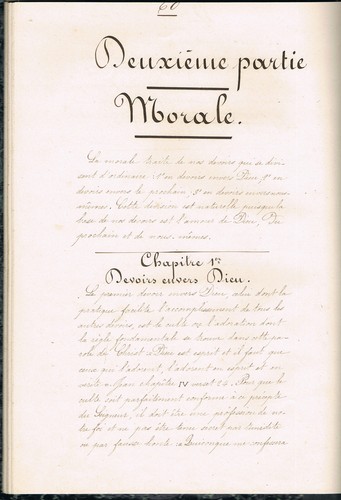 60
Deuxième partie
Morale.
La morale traite de nos devoirs que se divi-
sent d'ordinaire: 1º en devoirs envers Dieu, 2º en
devoirs envers le prochain, 3º en devoirs envers nous
mêmes. Cette division est naturelle puisque la
base de nos devoirs est l'amour de Dieu, du
prochain et de nous-mêmes.
Chapitre 1er
Devoirs envers Dieu.
Le premier devoir envers Dieu, celui dont la
pratique facilite l'accomplissement de tous les
autres devoirs, est le culte ou l'adoration dont
la règle fondamentale se trouve dans cette pa-
role du Christ: Dieu est esprit et il faut que
ceux qui l'adorent, l'adorent en esprit et en
vérité. Jean chapitre IV 24. Pour que le
culte soit parfaitement conforme à ce précepte
du Seigneur, il doit être une profession de no-
tre foi et ne pas être tenu secret par
ou par fausse honte: Quiconque me confessera